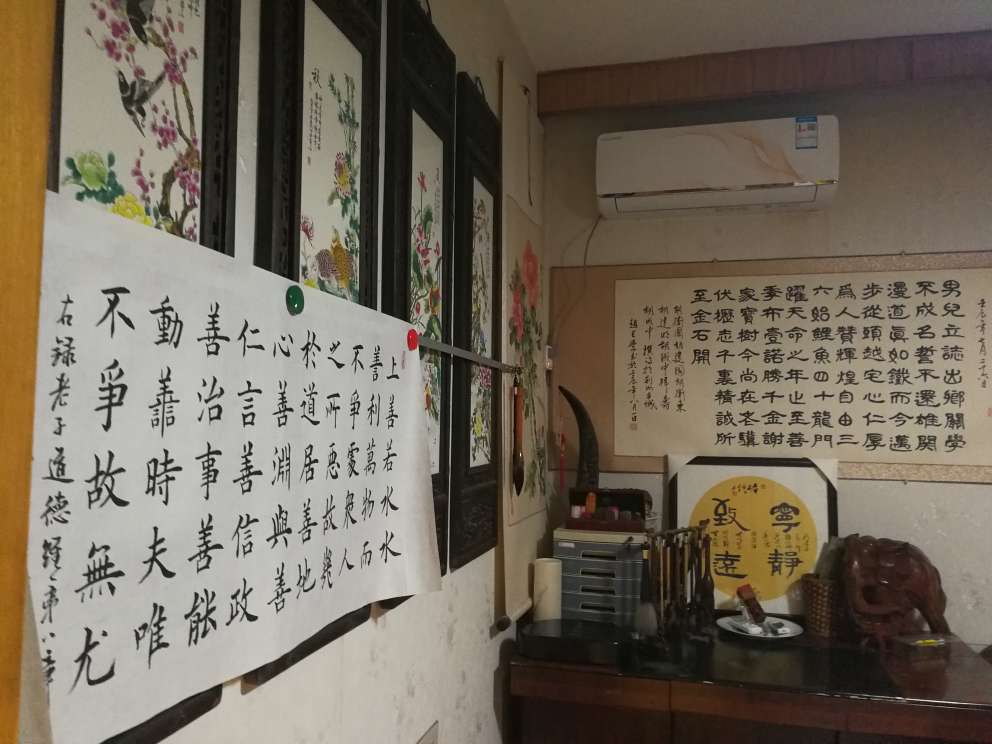 上善若水水
善利萬物而
不爭處衆人
之所惡故幾
於道居善地
心善淵與善
仁言善信政
善治事善能
動譱時夫唯
不爭故無尤
右録老子道德經第八章
秋
男兒立誌出鄉關學
不成名誓不還雄関
漫道真如鐵而今邁
步從頭越宅心仁厚
爲人贊輝煌自由三
六始鯉魚四十龍門
躍天命之年止至善
季布壹諾勝千金謝
家寶樹今尚在老驥
伏櫪志千裏精誠所
至金石開
寧靜
致遠